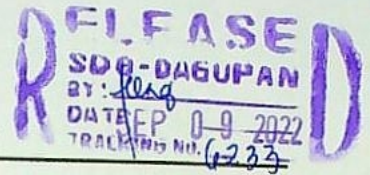 RELEASED
SDO-DAGUPAN
BY:
DATE SEP 09 2022
TRACKING NO. 6233